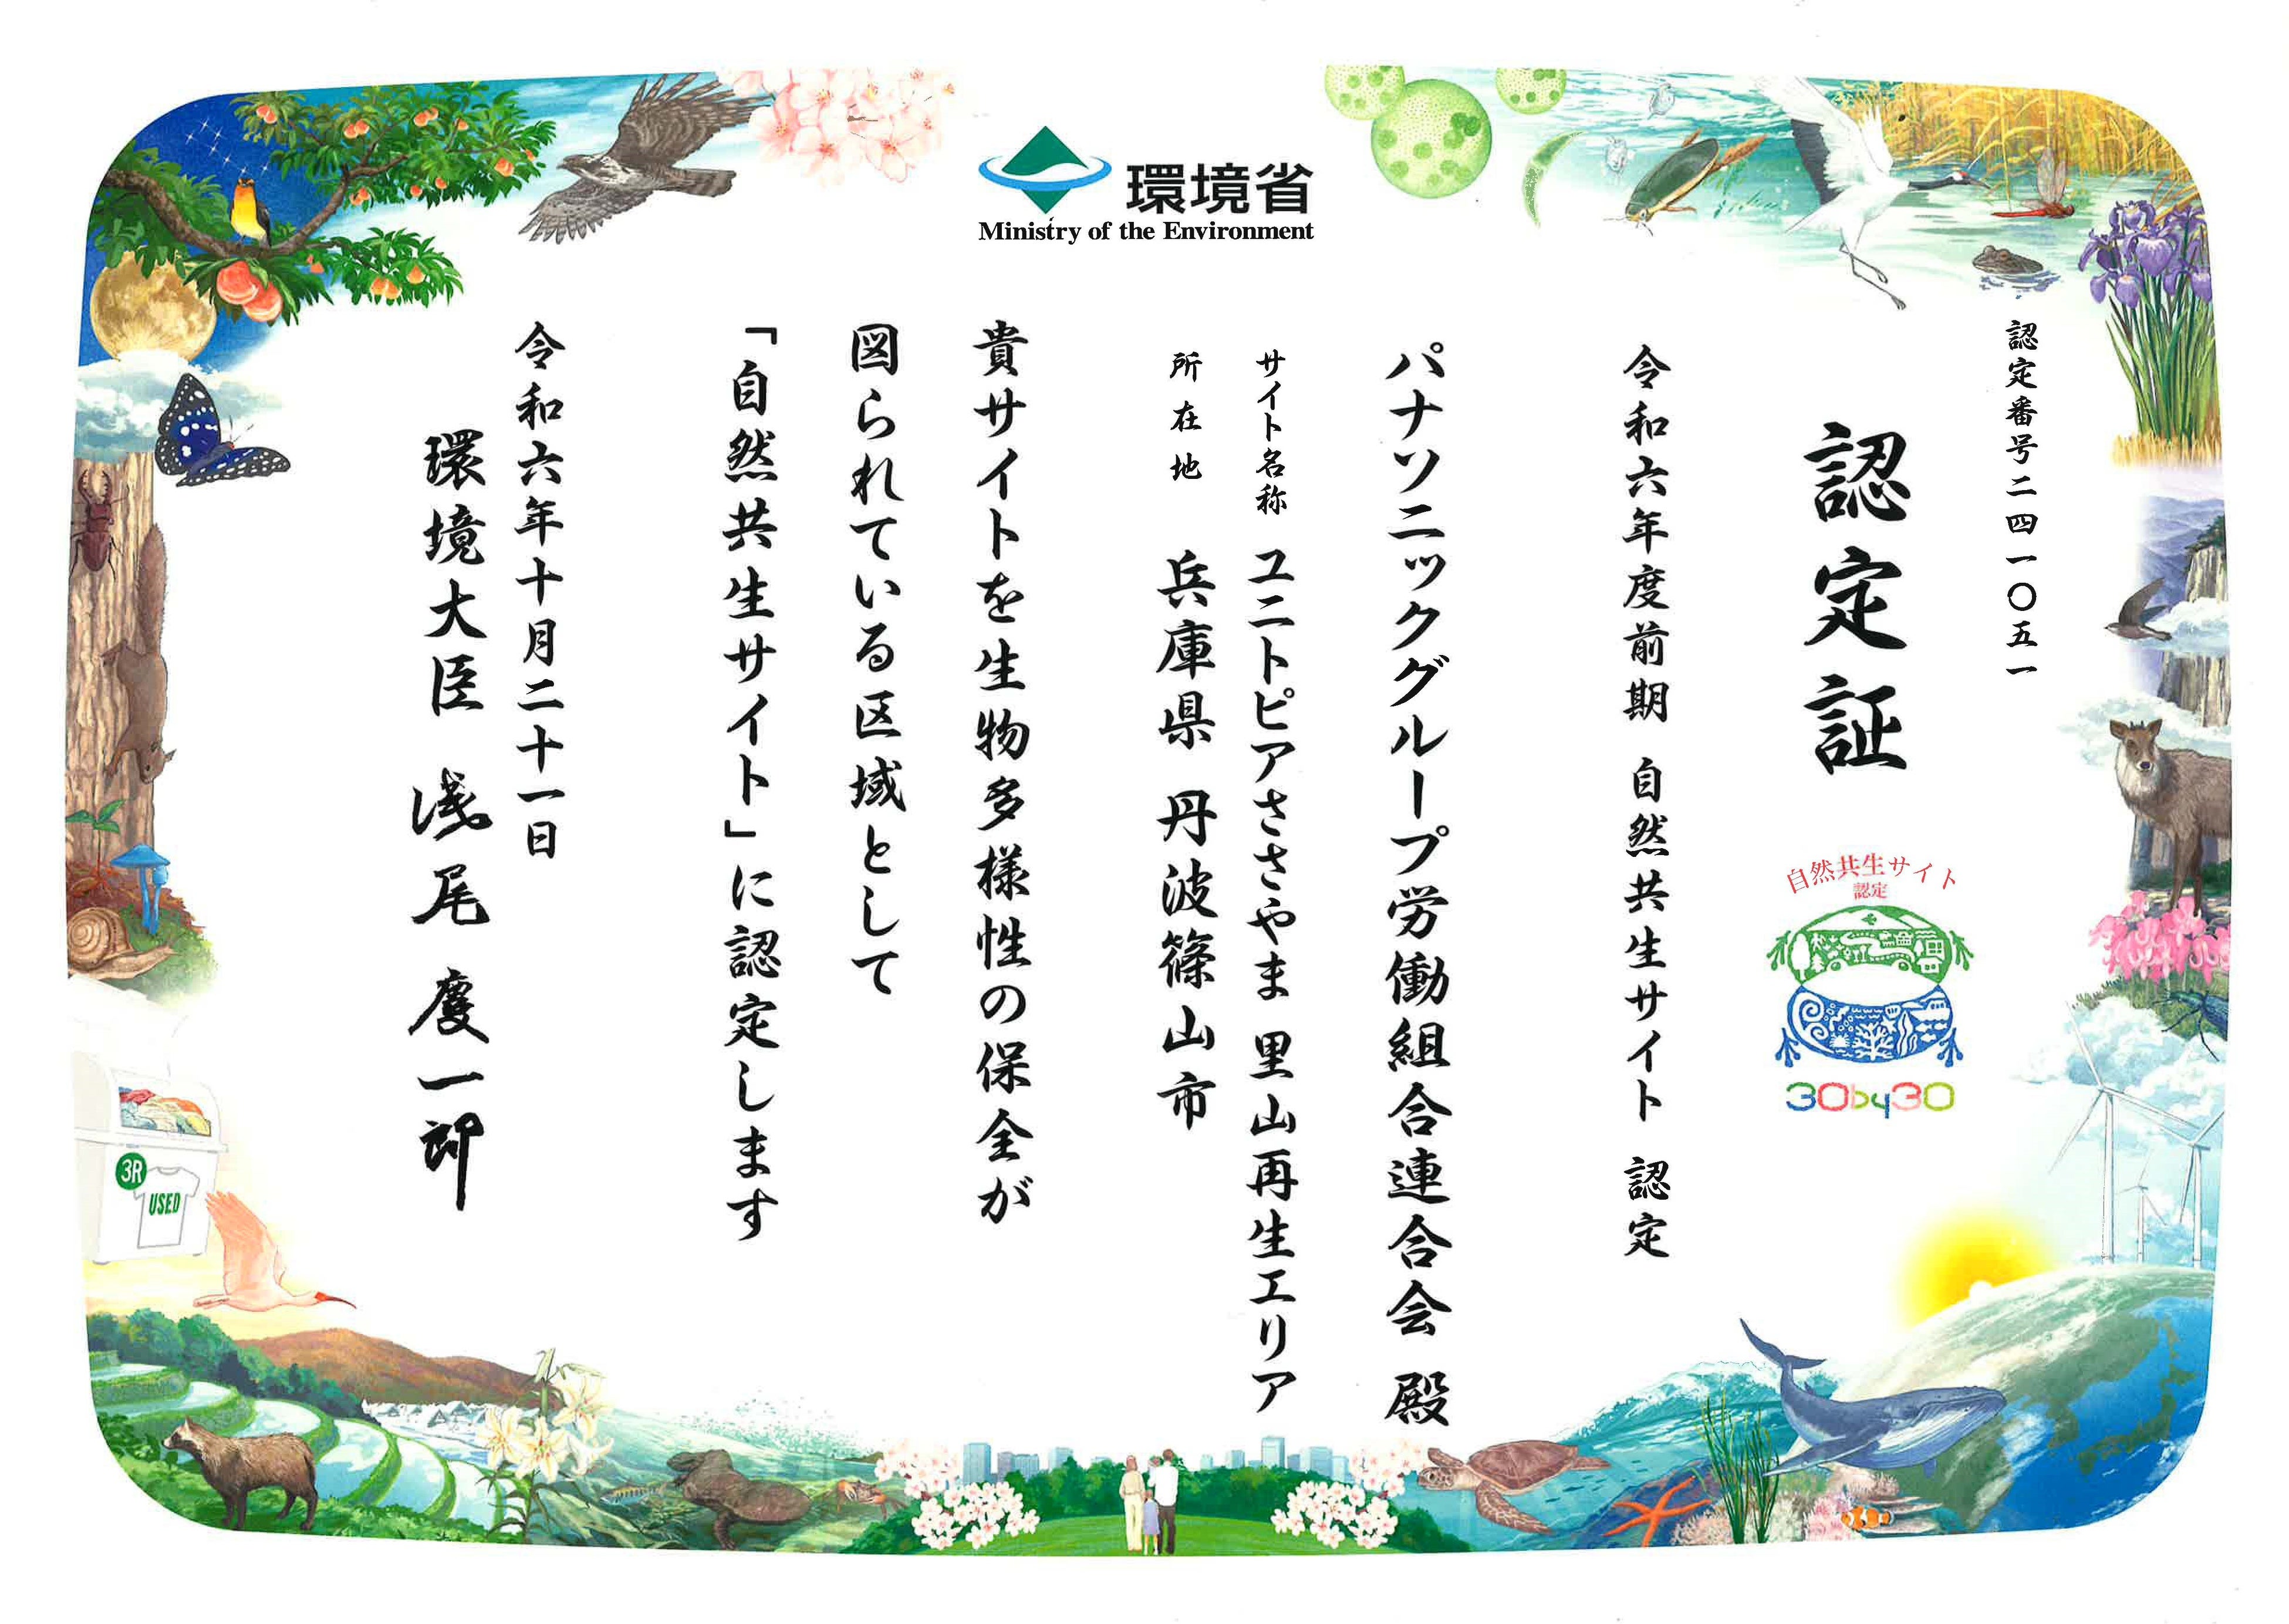 環境省
Ministry of the Environment
認定番号二四一〇五一
認定証
自然共生サイト
認定
30by30
令和六年度前期 自然共生サイト 認定
パナソニックグループ労働組合連合会 殿
サイト名称 ユニトピアささやま 里山再生エリア
所在地 兵庫県 丹波篠山市
貴サイトを生物多様性の保全が
図られている区域として
「自然共生サイト」に認定します
令和六年十月二十一日
環境大臣 浅尾慶一郎
3R
USED